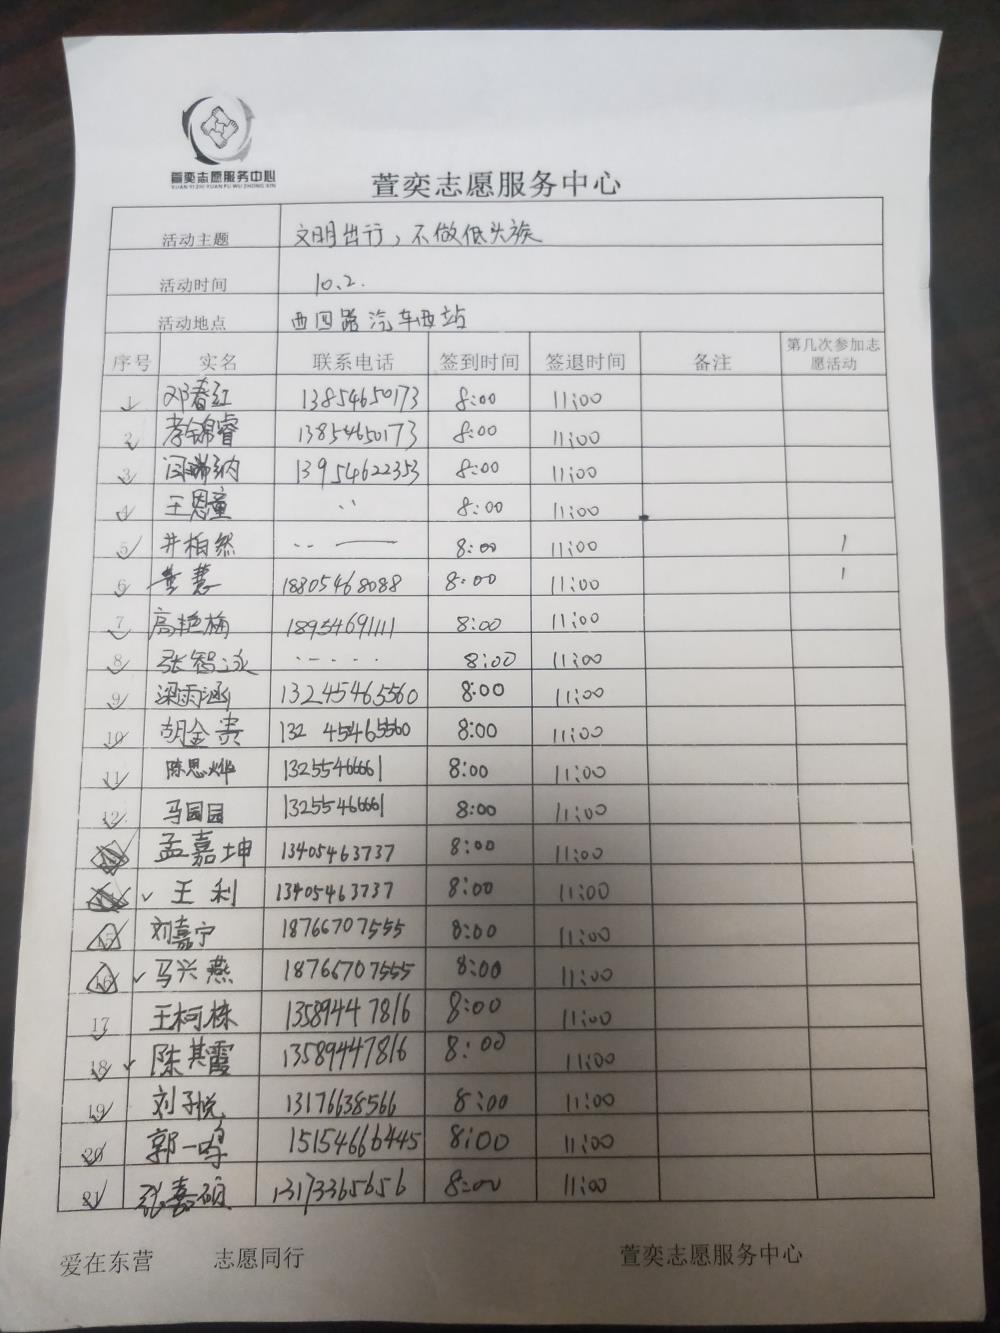 萱奕志愿服务中心
XUAN YI ZHI YUAN FU WU ZHONG XIN
萱奕志愿服务中心
活动主题 文明出行，不做低头族
活动时间 10.2.
活动地点 西四路汽车西站
序号 实名 联系电话 签到时间 签退时间 备注 第几次参加志愿活动
1 邓春红 13854650173 8:00 11:00
2 李锦睿 13854650173 8:00 11:00
3 闫瑞纳 13954622353 8:00 11:00
4 王恩童 8:00 11:00
5 井柏然 8:00 11:00 1
6 黄慧 18805468088 8:00 11:00 1
7 高艳梅 18954691111 8:00 11:00
8 张智泳 8:00 11:00
9 梁雨涵 13245465560 8:00 11:00
10 胡金贵 13245465560 8:00 11:00
11 陈思烨 13255466661 8:00 11:00
12 马园园 13255466661 8:00 11:00
孟嘉坤 13405463737 8:00 11:00
王利 13405463737 8:00 11:00
15 刘嘉宁 18766707555 8:00 11:00
16 马兴燕 18766707555 8:00 11:00
17 王柯栋 13589447816 8:00 11:00
18 陈其霞 13589447816 8:00 11:00
19 刘子悦 13176638566 8:00 11:00
20 郭一鸣 15154666445 8:00 11:00
21 张嘉硕 13173365656 8:00 11:00
爱在东营 志愿同行 萱奕志愿服务中心